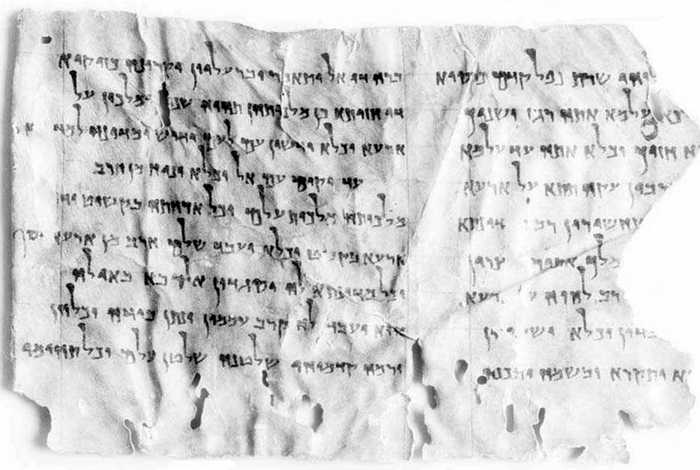 עלוהי שרת נפל קדם כרסיא
עלמא אתה רגז ושניך
חזוך וכלא אתה עד עלמא
עקה תתא על ארעא
רב במדינתא
מלך אתור ומצרין
רב להוה על ארעא
עבדון וכלא ישמשון
א יתקרא ובשמה יתכנה
ברה די אל יתאמר ובר עליון יקרונה כזיקיא
די חזותא כן מלכותהן תהוה שנין ימלכון על
ארעא וכלא ידשון עם לעם ידוש ומדינה למדינה
עד יקום עם אל וכלא יניח מן חרב
מלכותה מלכות עלם וכל ארחתה בקשוט ידין
ארעא בקשט וכלא יעבד שלם חרב מן ארעא יסף
וכל מדינתא לה יסגדון אל רבא באילה
הוא ועבד לה קרב עממין ינתן בידה וכלהן
ירמה קדמוהי שלטנה שלטן עלם וכל תהומי